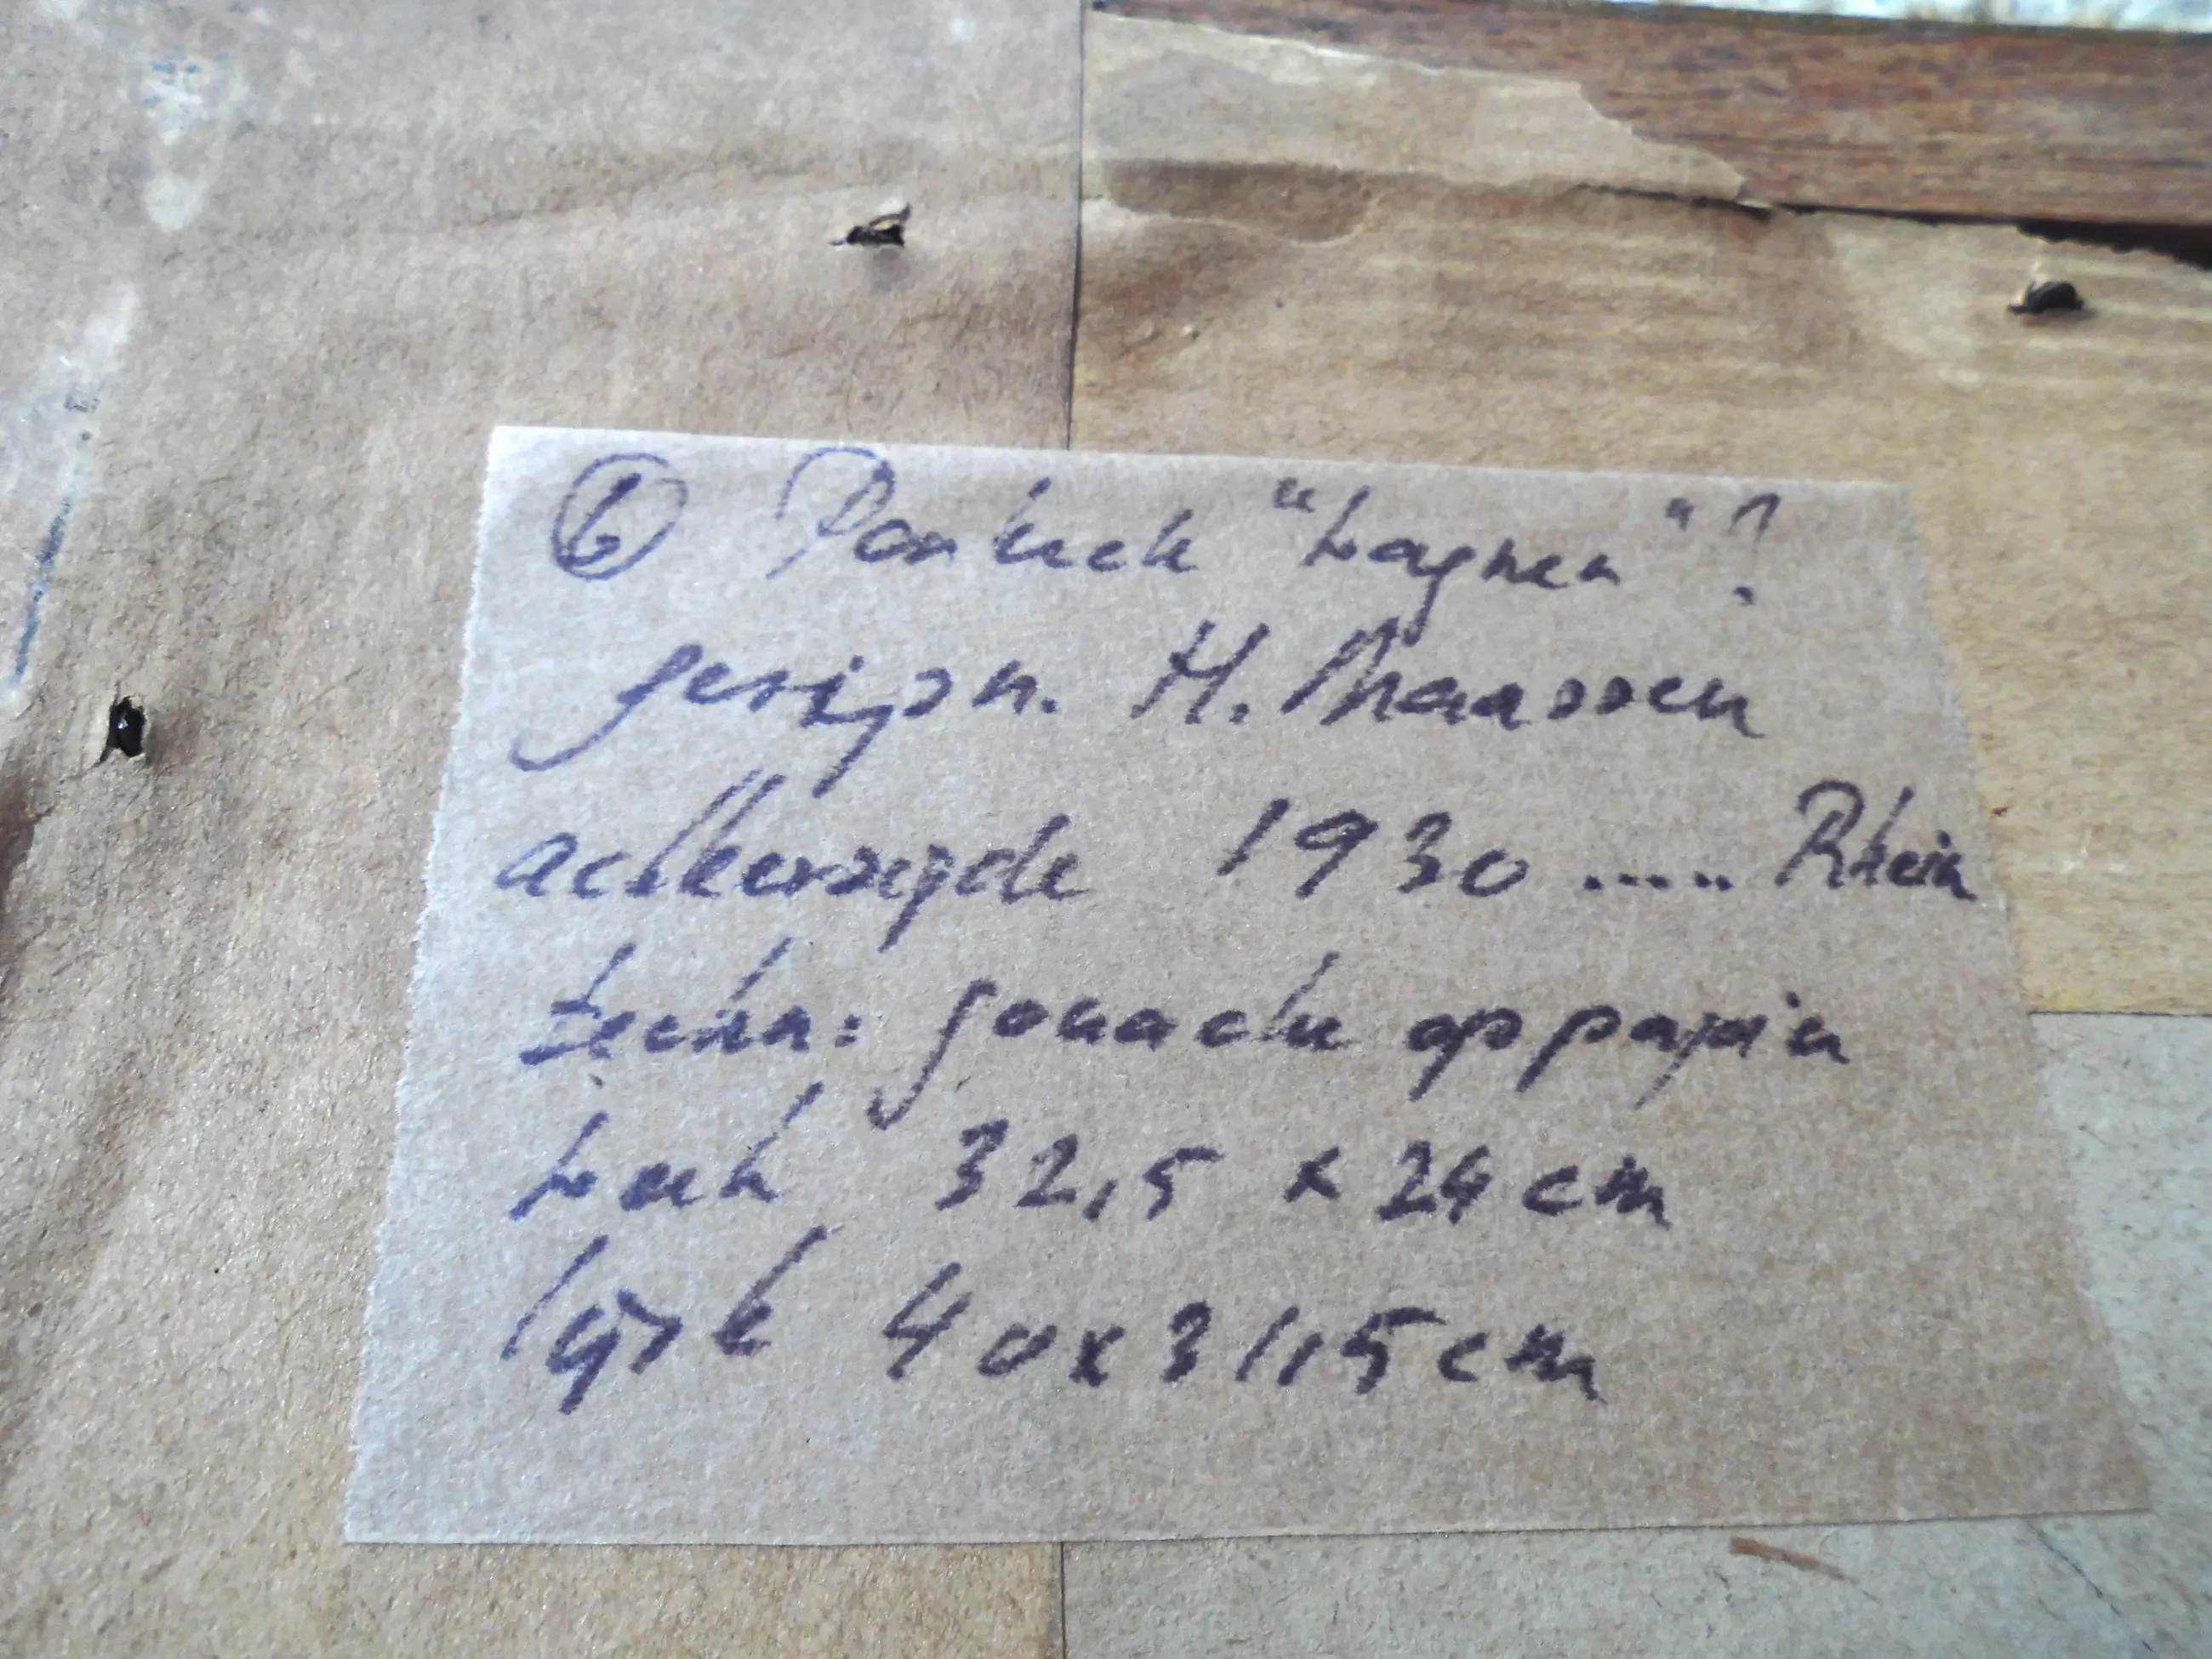 ⑥ Portret "Wagner"?
gesign. H. Maassen
achterzijde 1930 ..... Rhein
techn: gouache op papier
werk 32,5 x 24 cm
lijst 40x31,5 cm